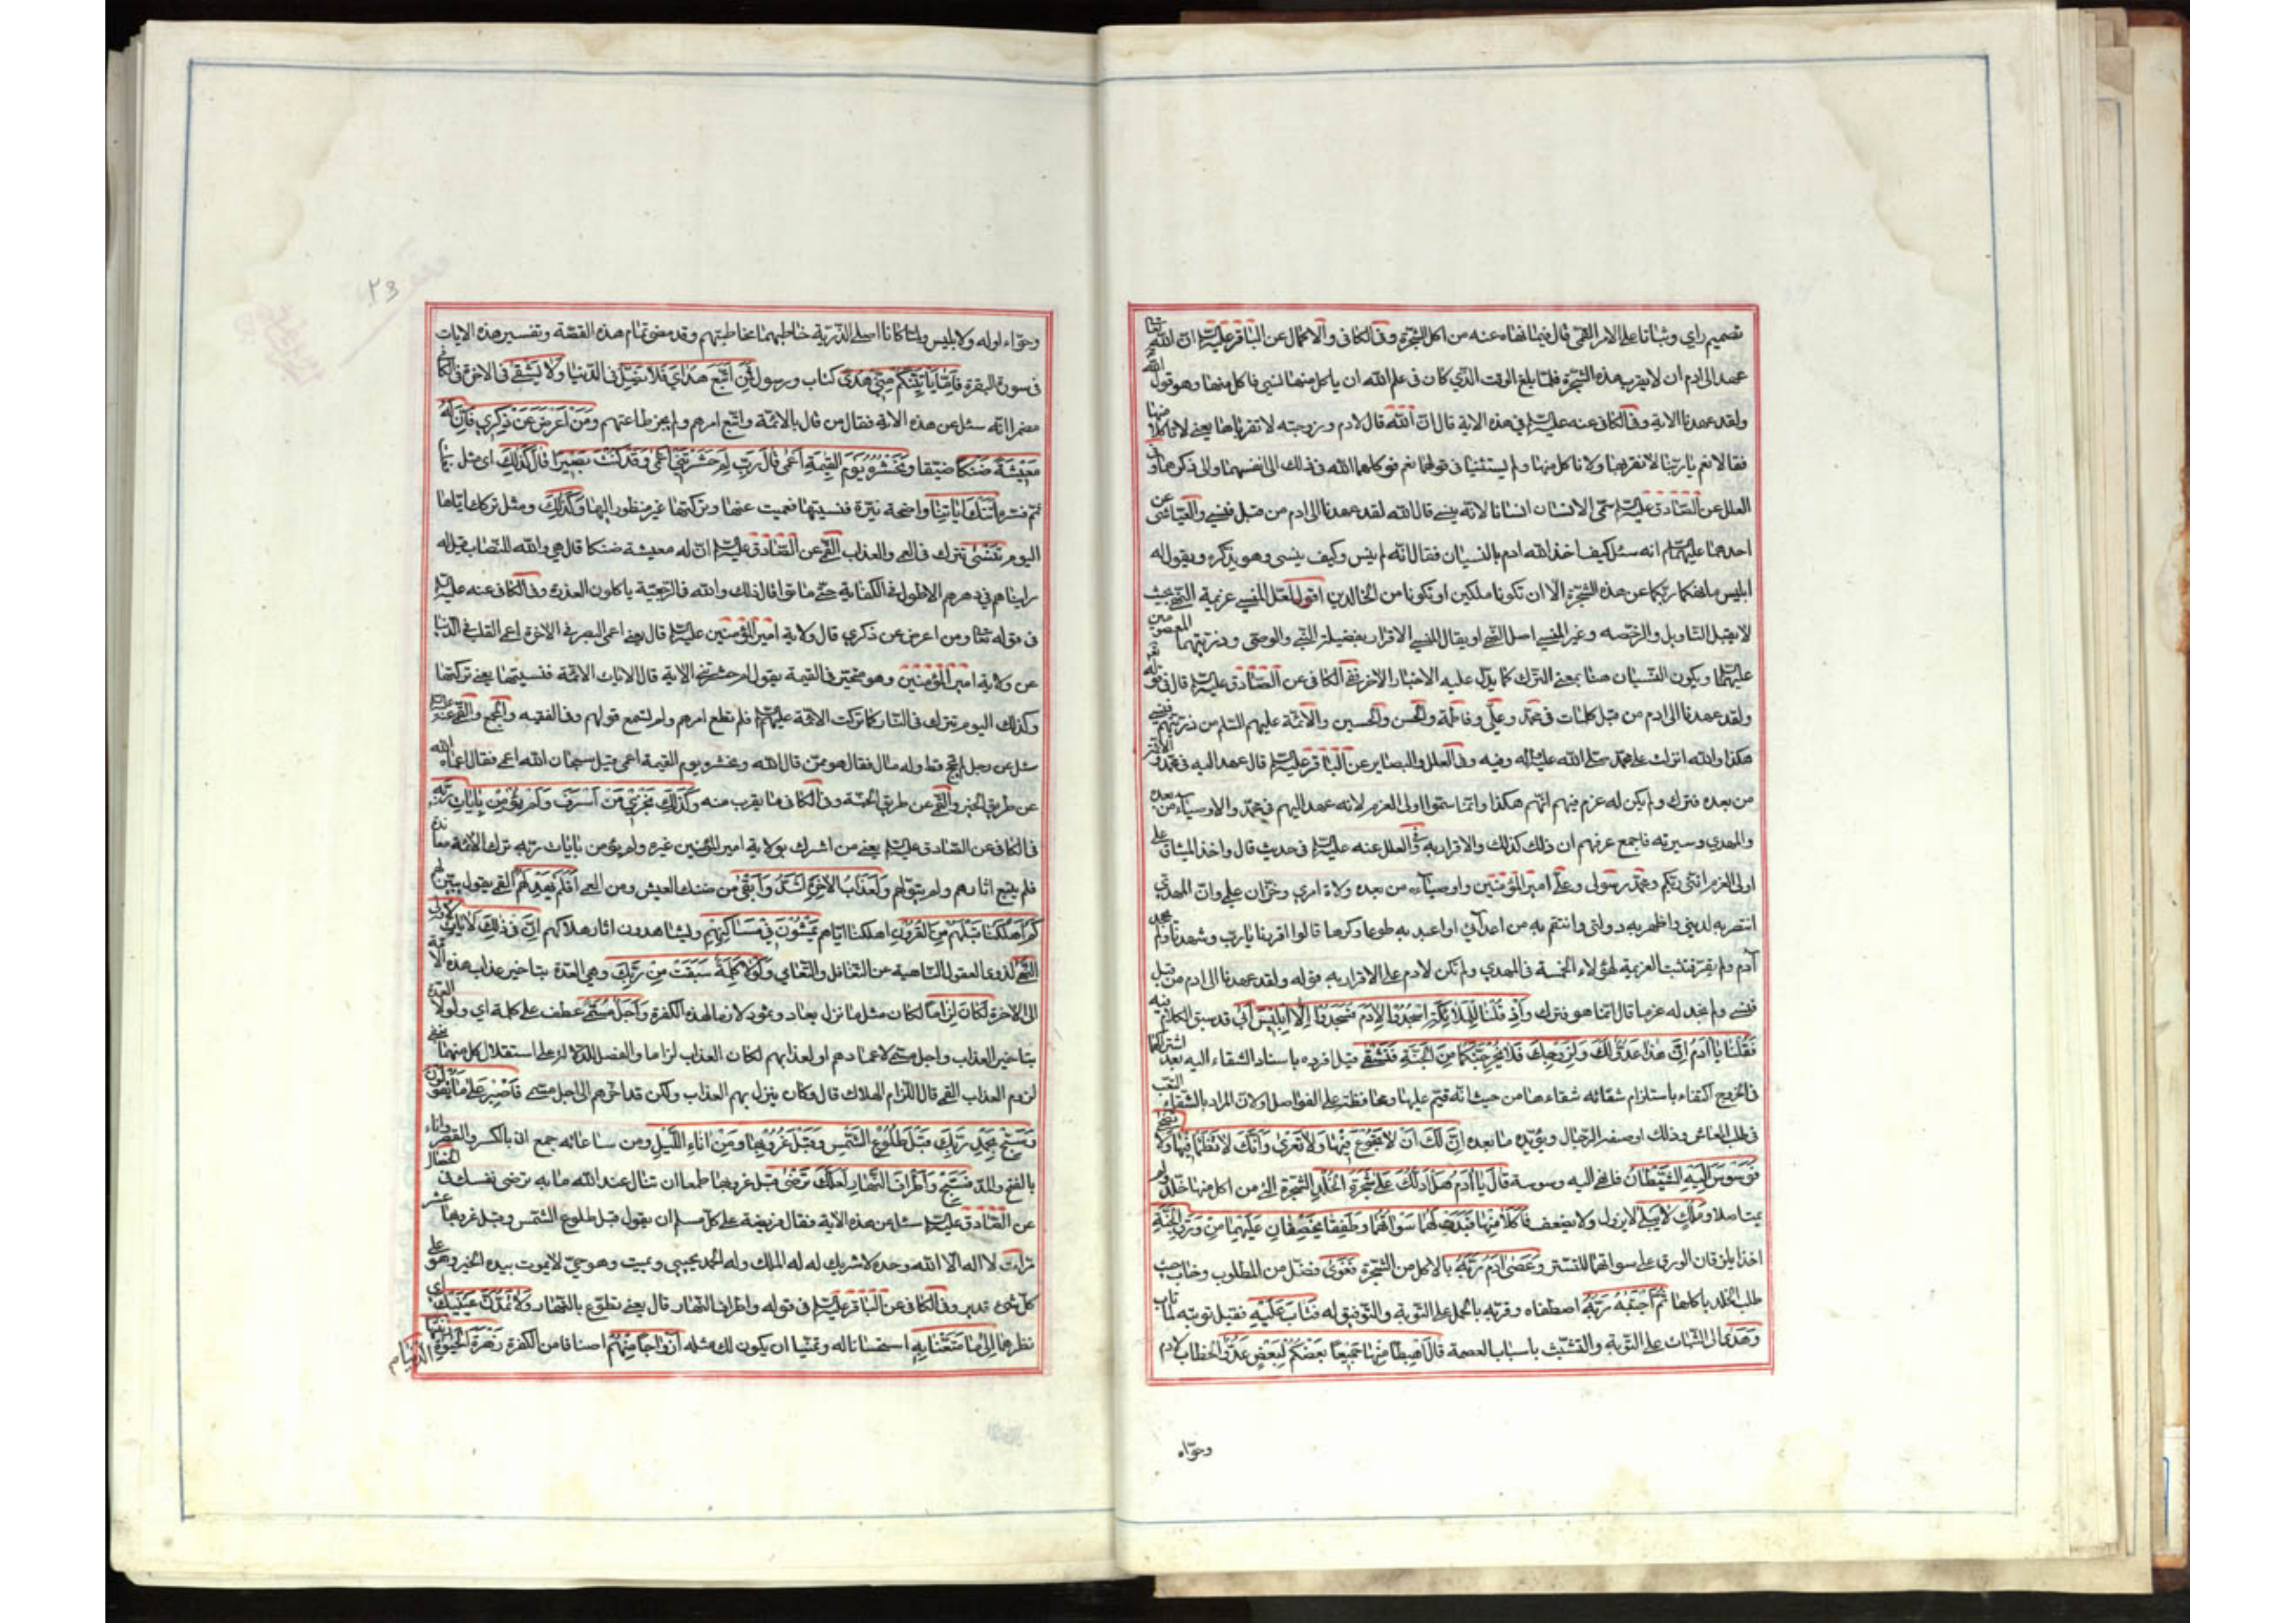 تصميم راي وثباتا على الامر القمى قال فيما نهاه عنه من اكل الشجرة وفى الكافى والاكمال عن الباقر عليه السلام ان الله تعالى
عهد الى ادم ان لا يقرب هذه الشجرة فلما بلغ الوقت الذي كان فى علم الله ان ياكل منها نسي فاكل منها وهو قول الله
ولقد عهدنا الاية وفى الكافى عنه عليه السلام فى هذه الاية قال ان الله قال لادم وزوجته لا تقرباها يعني لا تاكلا منها
فقالا نعم يا ربنا لا نقربها ولا ناكل منها ولم يستثنيا فى قولهما نعم فوكلهما الله فى ذلك الى انفسهما والى ذكرهما وفى
العلل عن الصادق عليه السلام سمى الانسان انسانا لانه ينسى قال الله لقد عهدنا الى ادم من قبل فنسي والعياشى عن
احدهما عليهما السلام انه سئل كيف اخذ الله ادم بالنسيان فقال انه لم ينس وكيف ينسى وهو يذكره ويقول له
ابليس ما نهيكما ربكما عن هذه الشجرة الا ان تكونا ملكين او تكونا من الخالدين اقول لعل المنسي عزيمة النهى بحيث
لا يقبل التاويل والرخصه وغير المنسي اصل النهى او يقال المنسي الاقرار بفضيلة النبي والوصى وذريتهما المعصومين
عليهما السلام ويكون النسيان هنا بمعنى الترك كما يدل عليه الاخبار الاخر ففى الكافى عن الصادق عليه السلام قال فى قوله تعالى
ولقد عهدنا الى ادم من قبل كلمات فى محمد وعلى وفاطمة والحسن والحسين والائمة عليهم السلم من ذريتهم فنسي
هكذا والله انزلت على محمد صلى الله عليه واله وفيه وفى العلل والبصاير عن الباقر عليه السلام قال عهد اليه فى محمد والائمة
من بعده فترك ولم يكن له عزم فيهم انهم هكذا وانما سموا اولى العزم لانه عهد اليهم فى محمد والاوصياء من بعده
والمهدي وسيرته فاجمع عزمهم ان ذلك كذلك والاقرار به وفى العلل عنه عليه السلام فى حديث قال واخذ الميثاق على
اولى العزم انني ربكم ومحمد رسولى وعلى امير المؤمنين واوصياؤه من بعده ولاة امري وخزان علمي وان المهدي
انتصر به لديني واظهر به دولتى وانتقم به من اعدائى اواعبد به طوعا وكرها قالوا اقررنا يا رب وشهدنا ولم يجحد
آدم ولم يقر فثبت العزيمة لهؤلاء الخمسة فى المهدي ولم تكن لادم على الاقرار به قوله ولقد عهدنا الى ادم من قبل
فنسي ولم نجد له عزما قال انما هو فترك وَاِذْ قُلْنَا لِلْمَلائِكَةِ اسْجُدُوا لِادَمَ فَسَجَدُوا اِلَّا اِبْلِيسَ اَبٰى قد سبق الكلام فيه
فَقُلْنَا يَا اٰدَمُ اِنَّ هٰذَا عَدُوٌّ لَكَ وَلِزَوْجِكَ فَلَا يُخْرِجَنَّكُمَا مِنَ الْجَنَّةِ فَتَشْقٰى قيل افرده باسناد الشقاء اليه بعد اشتراكهما
فى الخروج اكتفاء باستلزام شقائه شقاءها من حيث انه قيم عليها ومحافظة على الفواصل ولان المراد بالشقاء التعب
فى طلب المعاش وذلك وظيفة الرجال ويؤيده ما بعده اِنَّ لَكَ اَنْ لَا تَجُوعَ فِيهَا وَلَا تَعْرٰى وَاَنَّكَ لَا تَظْمَأُ فِيهَا وَلَا تَضْحٰى
فَوَسْوَسَ اِلَيْهِ الشَّيْطَانُ فانهى اليه وسوسة قَالَ يَا اٰدَمُ هَلْ اَدُلُّكَ عَلٰى شَجَرَةِ الْخُلْدِ الشجرة التى من اكل منها خلد ولم
يمت اصلا وَمُلْكٍ لَا يَبْلٰى لا يزول ولا يضعف فَاَكَلَا مِنْهَا فَبَدَتْ لَهُمَا سَوْاٰتُهُمَا وَطَفِقَا يَخْصِفَانِ عَلَيْهِمَا مِنْ وَرَقِ الْجَنَّةِ
اخذا يلزقان الورق على سواتهما للتستر وَعَصٰى اٰدَمُ رَبَّهُ بالاكل من الشجرة فَغَوٰى فضل من المطلوب وخاب حيث
طلب الخلد باكلها ثُمَّ اجْتَبٰهُ رَبُّهُ اصطفاه وقربه بالحمل على التوبة والتوفيق له فَتَابَ عَلَيْهِ فقبل توبته لما تاب
وَهَدٰى الى الثبات على التوبة والتشبث باسباب العصمة قَالَ اهْبِطَا مِنْهَا جَمِيعًا بَعْضُكُمْ لِبَعْضٍ عَدُوٌّ الخطاب لادم
وحوّاء
٢٣
وحوّاء اوله ولابليس ولما كانا اصلى الذرية خاطبهما مخاطبتهم وقد مضى تمام هذه القصة وتفسير هذه الايات
فى سورة البقرة فَاِمَّا يَاْتِيَنَّكُمْ مِنِّى هُدًى كتاب ورسول فَمَنِ اتَّبَعَ هُدَايَ فَلَا يَضِلُّ فى الدنيا وَلَا يَشْقٰى فى الاخرة فى الكافى
مضمرا انه سئل عن هذه الاية فقال من قال بالائمة واتبع امرهم ولم يجز طاعتهم وَمَنْ اَعْرَضَ عَنْ ذِكْرِي فَاِنَّ لَهُ
مَعِيشَةً ضَنْكًا ضيقا وَنَحْشُرُهُ يَوْمَ الْقِيٰمَةِ اَعْمٰى قَالَ رَبِّ لِمَ حَشَرْتَنِي اَعْمٰى وَقَدْ كُنْتُ بَصِيرًا قَالَ كَذٰلِكَ اى مثل
ثم فسره اَتَتْكَ اٰيَاتُنَا واضحة نيرة فنسيتها فعميت عنها وتركتها غير منظور اليها وَكَذٰلِكَ ومثل تركك اياها
اليوم تُنْسٰى تترك فى العمى والعذاب القمى عن الصادق عليه السلام ان له معيشة ضنكا قال هي والله للنصاب قيل له
رايناهم فى دهرهم الاطول فى الكفاية حتى ماتوا قال ذلك والله فى الرجعة ياكلون العذرة وفى الكافى عنه عليه السلام
فى قوله تعالى ومن اعرض عن ذكري قال ولاية امير المؤمنين عليه السلام قال يعنى اعمى البصر فى الاخرة اعمى القلب فى الدنيا
عن ولاية امير المؤمنين وهو متحير فى القيمة يقول لم حشرتني الاية قال الايات الائمة فنسيتها يعنى تركتها
وكذلك اليوم تترك فى النار كما تركت الائمة عليهم السلام فلم تطع امرهم ولم تسمع قولهم وفى الفقيه والقمى عنه عليه السلام
سئل عن رجل لم يحج قط وله مال فقال هو ممن قال الله ونحشره يوم القيمة اعمى قيل سبحان الله اعمى فقال اعماه الله
عن طريق الخير والقمى عن طريق الجنة وفى الكافى ما يقرب منه وَكَذٰلِكَ نَجْزِي مَنْ اَسْرَفَ وَلَمْ يُؤْمِنْ بِاٰيَاتِ رَبِّهِ
فى الكافى عن الصادق عليه السلام يعنى من اشرك بولاية امير المؤمنين غيره ولم يؤمن بايات ربه ترك الائمة معاندة
فلم يتبع اثارهم ولم يتولهم وَلَعَذَابُ الْاٰخِرَةِ اَشَدُّ وَاَبْقٰى من ضنك العيش ومن العمى اَفَلَمْ يَهْدِ لَهُمْ القمى يقول يبين لهم
كَمْ اَهْلَكْنَا قَبْلَهُمْ مِنَ الْقُرُونِ اهلاكنا اياهم يَمْشُونَ فِي مَسَاكِنِهِمْ ويشاهدون اثار هلاكهم اِنَّ فِي ذٰلِكَ لَاٰيَاتٍ لِاُولِى
النُّهٰى لذوى العقول الناهية عن التغافل والتعامي وَلَوْلَا كَلِمَةٌ سَبَقَتْ مِنْ رَبِّكَ وهي العدة بتاخير عذاب هذه الامة
الى الاخرة لَكَانَ لِزَامًا لكان مثل ما نزل بعاد وثمود لازما لهذه الكفرة وَاَجَلٌ مُسَمًّى عطف على كلمة اي ولولا العدة
بتاخير العذاب واجل مسمى لاعمارهم او لعذابهم لكان العذاب لزاما والفصل للدلالة على استقلال كل منهما بنفى
لزوم العذاب القمى قال اللزام الهلاك قال وكان ينزل بهم العذاب ولكن قد اخرهم الى اجل مسمى فَاصْبِرْ عَلٰى مَا يَقُولُونَ
وَسَبِّحْ بِحَمْدِ رَبِّكَ قَبْلَ طُلُوعِ الشَّمْسِ وَقَبْلَ غُرُوبِهَا وَمِنْ اٰنَاءِ اللَّيْلِ ومن ساعاته جمع انى بالكسر والقصر واناء
بالفتح والمد فَسَبِّحْ وَاَطْرَافَ النَّهَارِ لَعَلَّكَ تَرْضٰى طمعا ان تنال عند الله ما به ترضى نفسك فى الخصال
عن الصادق عليه السلام سئل عن هذه الاية فقال فريضة على كل مسلم ان يقول قبل طلوع الشمس وقبل غروبها عشر
مرات لا اله الا الله وحده لا شريك له له الملك وله الحمد يحيى ويميت وهو حي لا يموت بيده الخير وهو على
كل شىء قدير وفى الكافى عن الباقر عليه السلام فى قوله واطراف النهار قال يعنى تطوع بالنهار وَلَا تَمُدَّنَّ عَيْنَيْكَ اى
نظرهما اِلٰى مَا مَتَّعْنَا بِهِ استحسانا له وتمنيا ان يكون لك مثله اَزْوَاجًا مِنْهُمْ اصنافا من الكفرة زَهْرَةَ الْحَيٰوةِ الدُّنْيَا